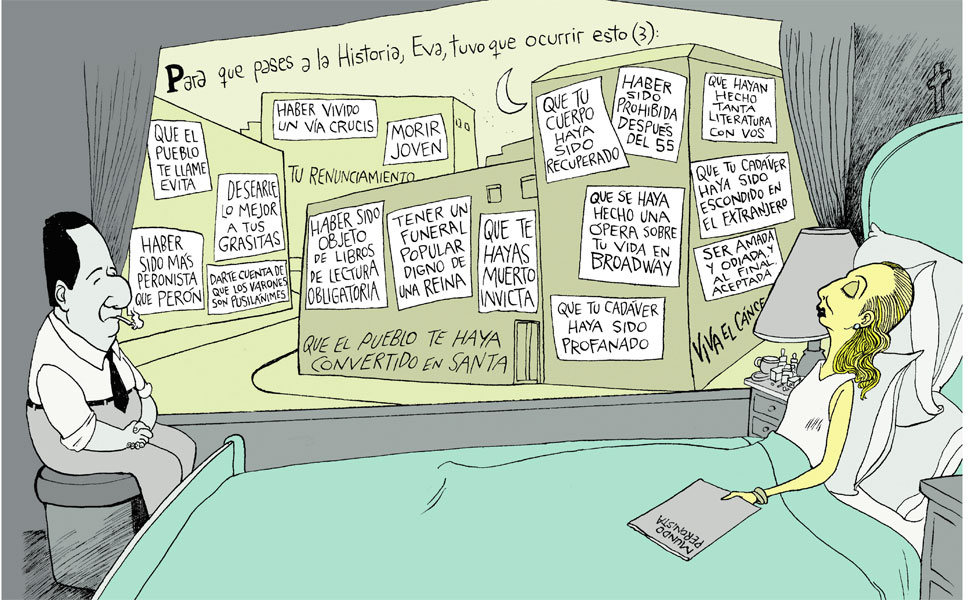 Para que pases a la Historia, Eva, tuvo que ocurrir esto (3):
QUE EL
PUEBLO
TE LLAME
EVITA
HABER VIVIDO
UN VÍA CRUCIS
MORIR
JOVEN
TU RENUNCIAMIENTO
DESEARLE
LO MEJOR
A TUS
GRASITAS
HABER
SIDO MÁS
PERONISTA
QUE PERÓN
DARTE CUENTA DE
QUE LOS VARONES
SON PUSILÁNIMES
HABER SIDO
OBJETO
DE LIBROS
DE LECTURA
OBLIGATORIA
TENER UN
FUNERAL
POPULAR
DIGNO DE
UNA REINA
QUE TE
HAYAS
MUERTO
INVICTA
QUE EL PUEBLO TE HAYA
CONVERTIDO EN SANTA
QUE TU
CUERPO
HAYA
SIDO
RECUPERADO
HABER
SIDO
PROHIBIDA
DESPUÉS
DEL 55
QUE HAYAN
HECHO
TANTA
LITERATURA
CON VOS
QUE TU CADÁVER
HAYA SIDO
ESCONDIDO EN
EL EXTRANJERO
QUE SE HAYA
HECHO UNA
ÓPERA SOBRE
TU VIDA EN
BROADWAY
SER AMADA
Y ODIADA, Y
AL FINAL,
ACEPTADA
QUE TU CADÁVER
HAYA SIDO
PROFANADO
VIVA EL CÁNCE
MUNDO
PERONISTA